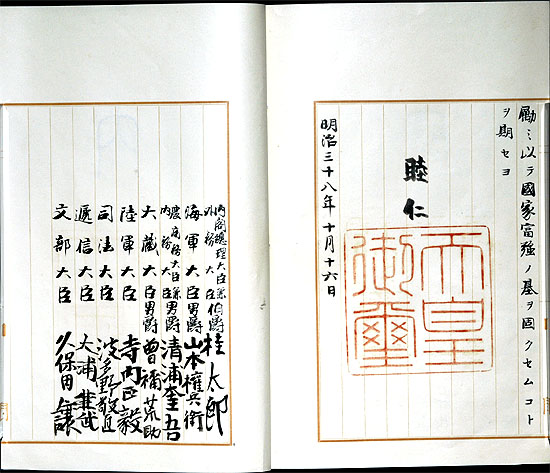 勵ミ以テ國家富强ノ基ヲ固クセムコト
ヲ期セヨ
睦仁
天皇
御璽
明治三十八年十月十六日
内閣總理大臣兼
外務大臣伯爵桂太郎
海軍大臣男爵山本權兵衛
農商務大臣兼
内務大臣男爵清浦奎吾
大藏大臣男爵曾禰荒助
陸軍大臣寺内正毅
司法大臣波多野敬直
遞信大臣大浦兼武
文部大臣久保田讓